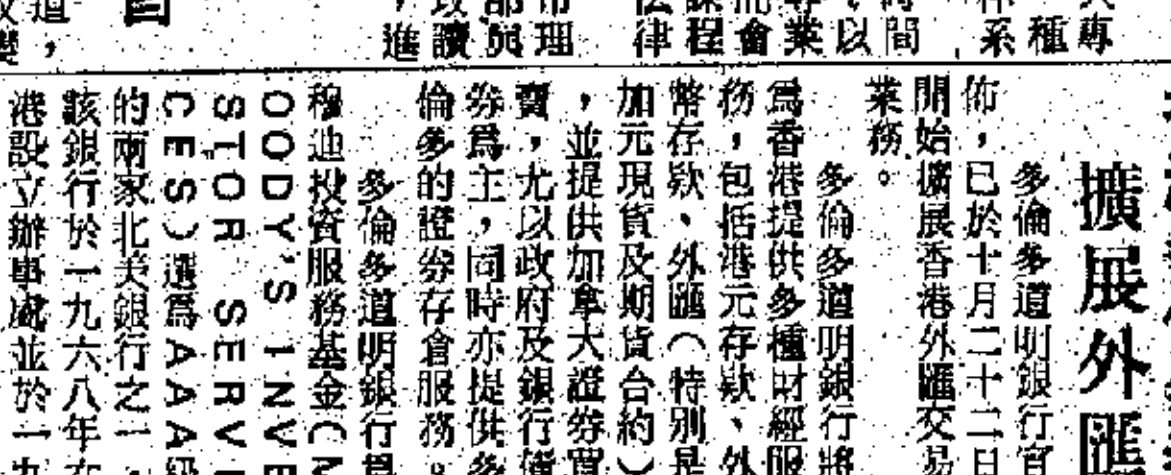 專
種
系
間
，以
業
會
課程
法律
市理
部員
攻讀
，進
道，
擴展外匯
多倫多道明銀行宣
佈，已於十月二十二日
開始擴展香港外匯交易
業務。
多倫多道明銀行將
爲香港提供多種財經服
務，包括港元存款、外
幣存款、外匯（特別是
加元現貨及期貨合約）
，並提供加拿大證券買
賣，尤以政府及銀行債
券爲主，同時亦提供多
倫多的證券存倉服務。
多倫多道明銀行爲
穆迪投資服務基金（M
OODY'S INVE
STOR SERVI
CES）選爲AAA級
的兩家北美銀行之一，
該銀行於一九六八年在
港設立辦事處並於一九